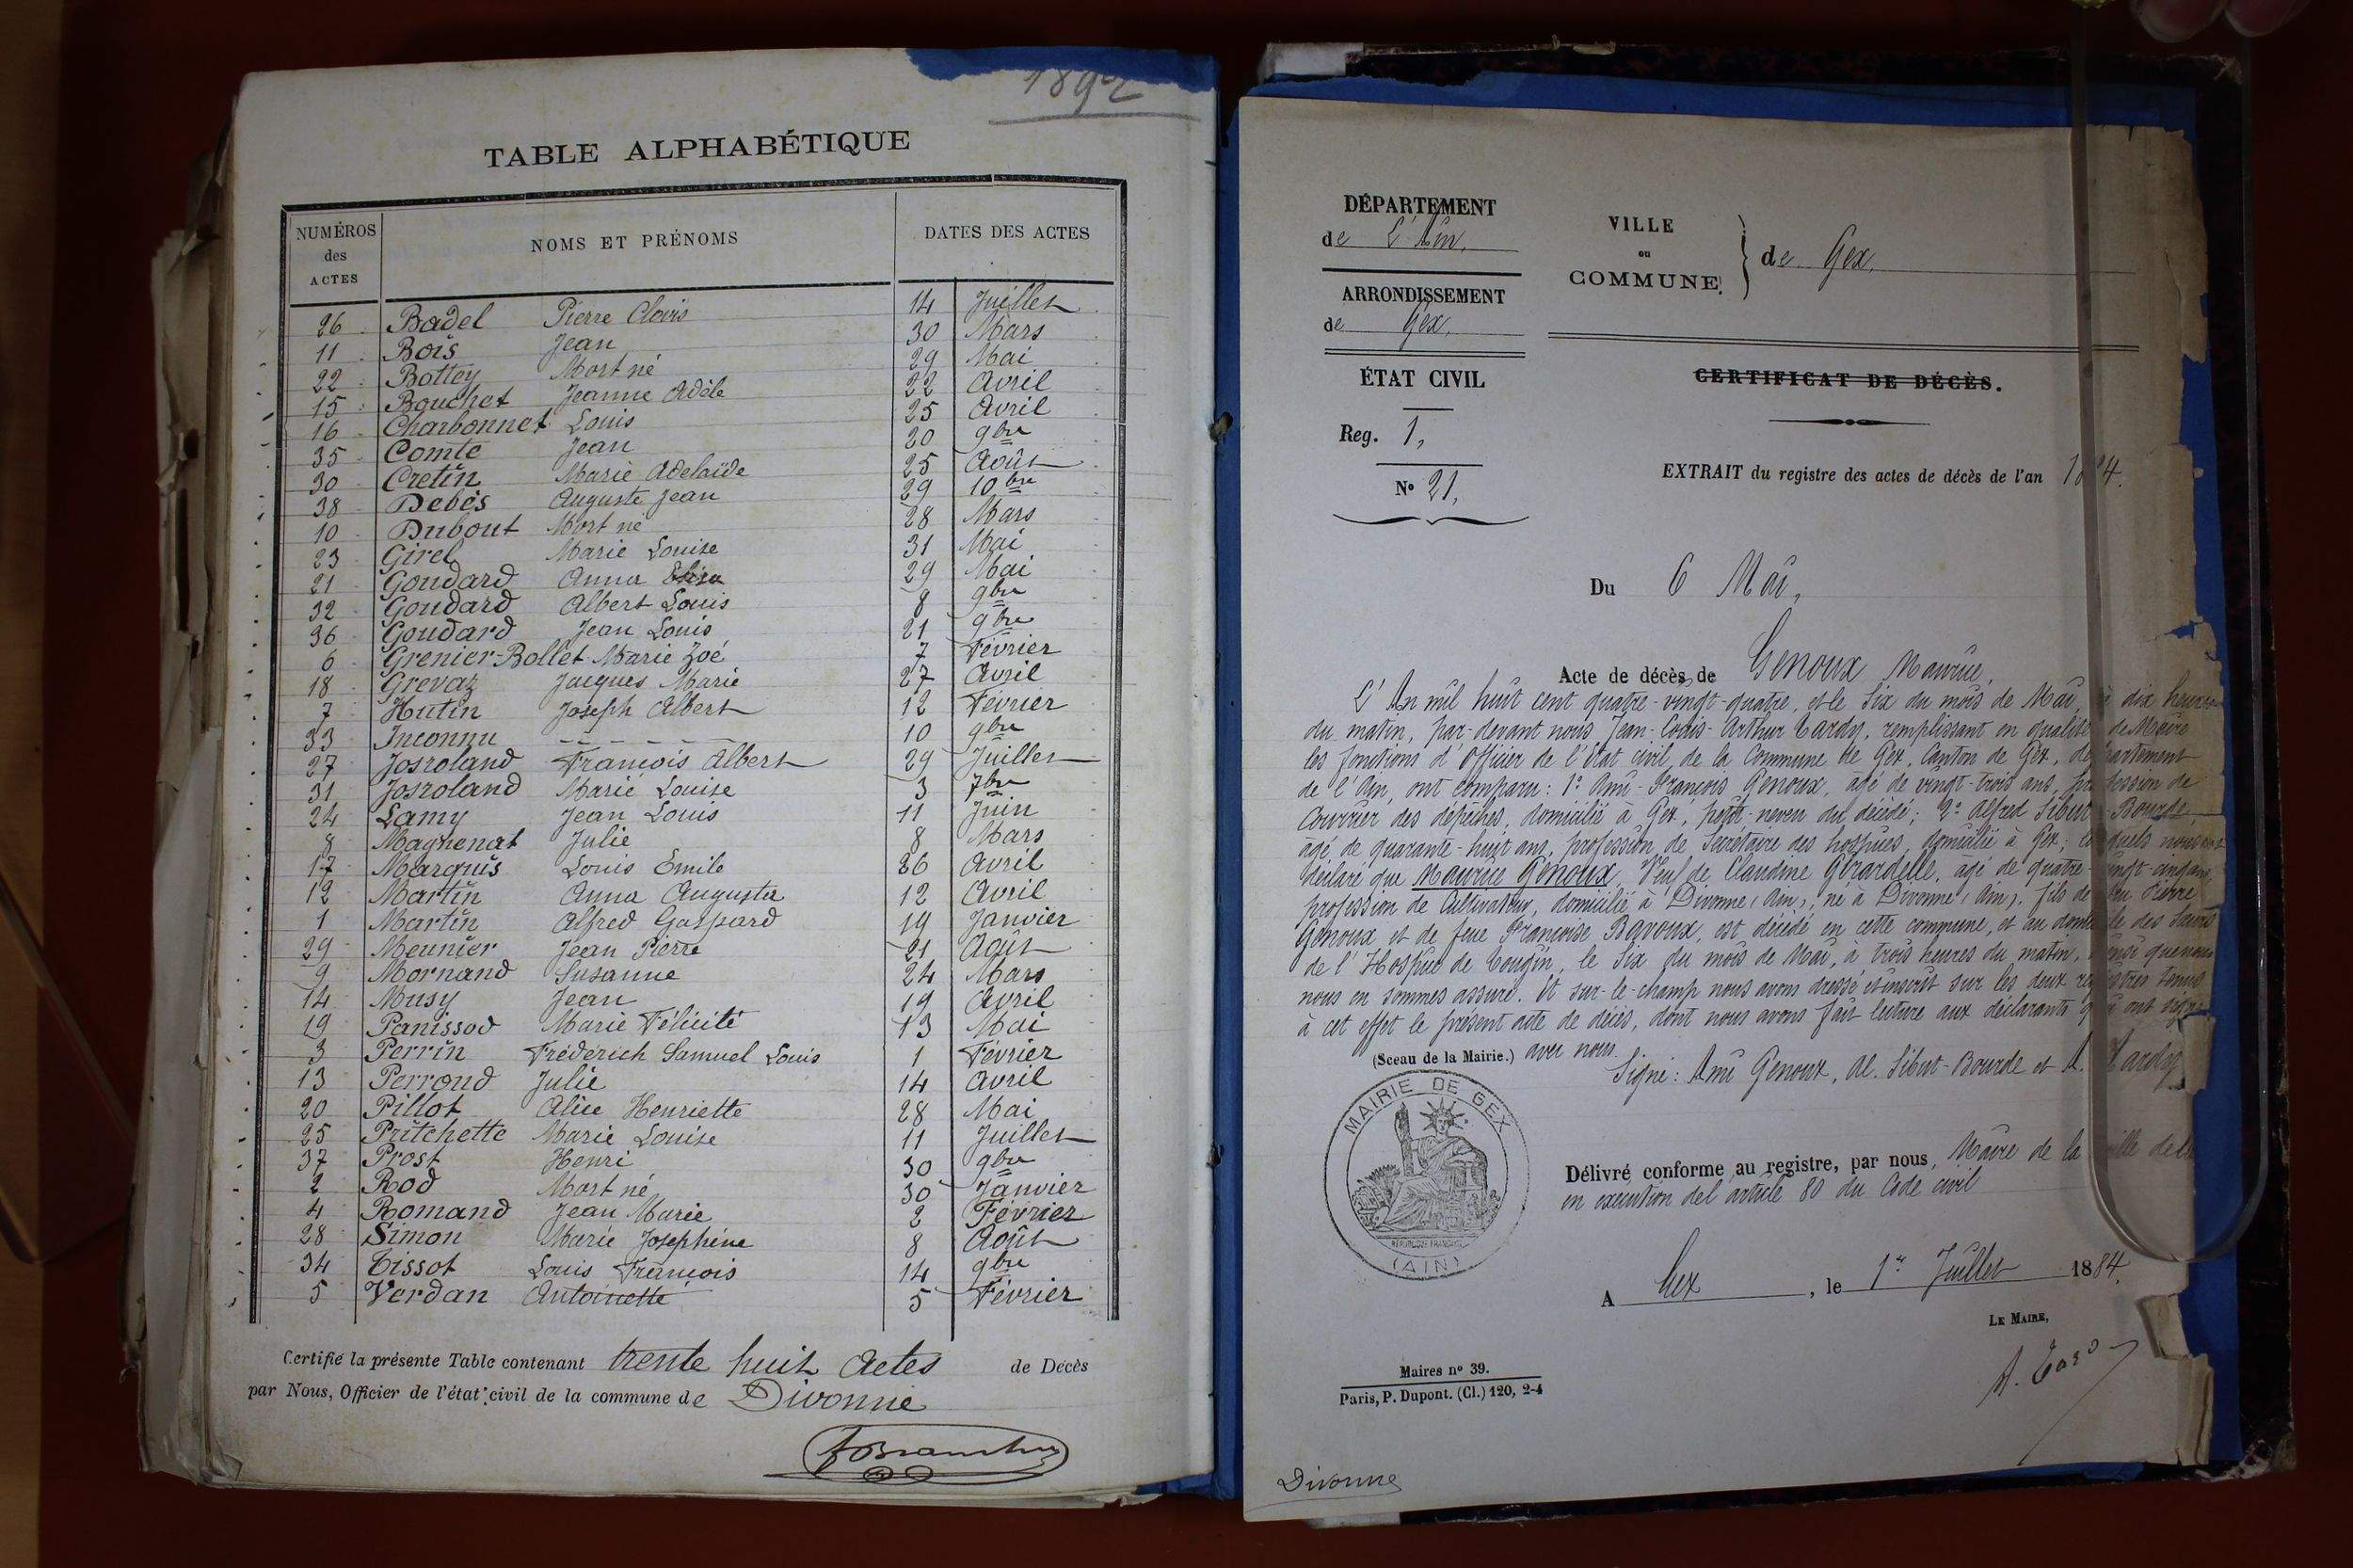 1892
TABLE ALPHABÉTIQUE
NUMÉROS des ACTES NOMS ET PRÉNOMS DATES DES ACTES
26 Badel Pierre Clovis 14 Juillet
11 Bois Jean 30 Mars
22 Bottey Mort né 29 Mai
15 Bouchet Jeanne Adèle 22 Avril
16 Charbonnet Louis 25 Avril
35 Comte Jean 20 9bre
30 Cretin Marie Adelaïde 25 Août
38 Debès Auguste Jean 29 10bre
10 Dubout Mort né 28 Mars
23 Girel Marie Louise 31 Mai
21 Goudard Anna Elisa 29 Mai
32 Goudard Albert Louis 8 9bre
36 Goudard Jean Louis 21 9bre
6 Grenier-Bollet Marie Zoé 7 Février
18 Grevaz Jacques Marie 27 Avril
7 Hutin Joseph Albert 12 Février
33 Inconnu - - - - - - 10 9bre
27 Josroland François Albert 29 Juillet
31 Josroland Marie Louise 3 7bre
24 Lamy Jean Louis 11 Juin
8 Magnenat Julie 8 Mars
17 Marquis Louis Emile 26 Avril
12 Martin Anna Augusta 12 Avril
1 Martin Alfred Gaspard 19 Janvier
29 Meunier Jean Pierre 21 Août
9 Mornand Susanne 24 Mars
14 Musy Jean 19 Avril
19 Panissod Marie Félicité 13 Mai
3 Perrin Fréderich Samuel Louis 1 Février
13 Perrond Julie 14 Avril
20 Pillot Alice Henriette 28 Mai
25 Pritchette Marie Louise 11 Juillet
37 Prost Henri 30 9bre
2 Rod Mort né 30 Janvier
4 Romand Jean Marie 2 Février
28 Simon Marie Josephine 8 Août
34 Tissot Louis François 14 9bre
5 Verdan Antoinette 5 Février
Certifié la présente Table contenant trente huit Actes de Décès
par Nous, Officier de l'état civil de la commune de Divonne
DÉPARTEMENT
de L'Ain,
ARRONDISSEMENT
de Gex,
ÉTAT CIVIL
Reg. 1,
N° 21,
VILLE
ou
COMMUNE
de Gex,
CERTIFICAT DE DÉCÈS.
EXTRAIT du registre des actes de décès de l'an 1884.
Du 6 Mai,
Acte de décès de Genoux Maurice,
L'An mil huit cent quatre-vingt-quatre, et le Six du mois de Mai, à dix heures
du matin, par-devant nous Jean-Louis-Arthur Tardy, remplissant en qualité de Maire
les fonctions d'Officier de l'Etat civil de la Commune de Gex, Canton de Gex, département
de l'Ain, ont comparu: 1° Ami-François Genoux, âgé de vingt-trois ans, profession de
Courrier des dépêches, domicilié à Gex, petit-neveu du décédé; 2° Alfred Sibut-Bourde,
âgé de quarante-huit ans, profession de Secrétaire des hospices, domicilié à Gex; lesquels nous ont
déclaré que Maurice Genoux, Veuf de Claudine Girardelle, âgé de quatre-vingt-cinq ans,
profession de Cultivateur, domicilié à Divonne (Ain), né à Divonne (Ain), fils de feu Pierre
Genoux et de feue Françoise Bavoux, est décédé en cette commune, et au domicile des Sœurs
de l'Hospice de Tougin, le Six du mois de Mai, à trois heures du matin, ainsi que nous
nous en sommes assuré. Et sur-le-champ nous avons dressé et inscrit sur les deux registres tenus
à cet effet le présent acte de décès, dont nous avons fait lecture aux déclarants qui ont signé
(Sceau de la Mairie.) avec nous.
Signé: Ami Genoux, Al. Sibut-Bourde et A. Tardy
MAIRIE DE GEX
RÉPUBLIQUE FRANÇAISE
(AIN)
Délivré conforme au registre, par nous, Maire de la ville de
en exécution de l'article 80 du Code civil
A Gex, le 1er Juillet 1884.
LE MAIRE,
A. Tardy
Maires n° 39.
Paris, P. Dupont. (Cl.) 120, 2-4
Divonne